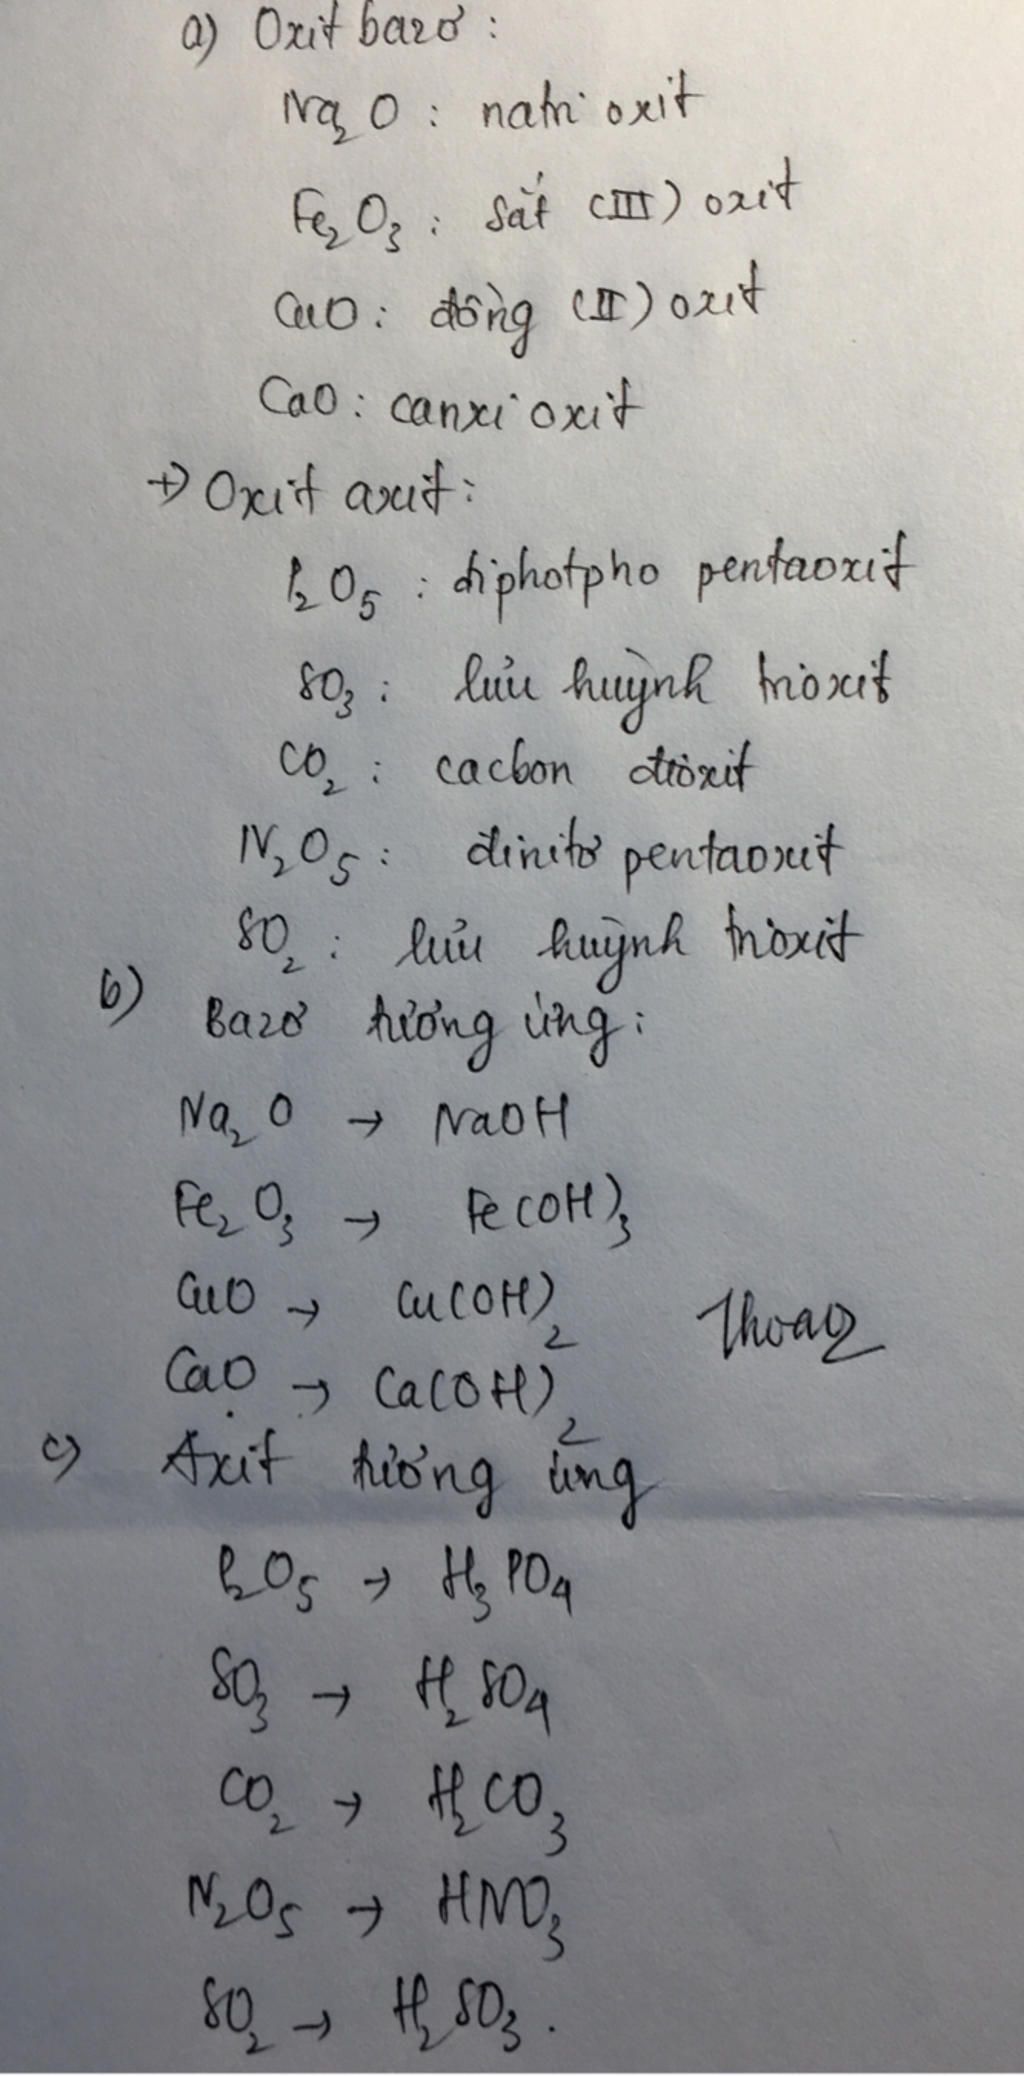 a) Oxit bazơ :
Na2O : natri oxit
Fe2O3 : sắt (III) oxit
CuO : đồng (II) oxit
CaO : canxi oxit
+) Oxit axit :
P2O5 : điphotpho pentaoxit
SO3 : lưu huỳnh trioxit
CO2 : cacbon đioxit
N2O5 : đinitơ pentaoxit
SO2 : lưu huỳnh trioxit
b) Bazơ tương ứng :
Na2O → NaOH
Fe2O3 → Fe(OH)3
CuO → Cu(OH)2
Thoa2
CaO → Ca(OH)2
c) Axit tương ứng
P2O5 → H3PO4
SO3 → H2SO4
CO2 → H2CO3
N2O5 → HNO3
SO2 → H2SO3.